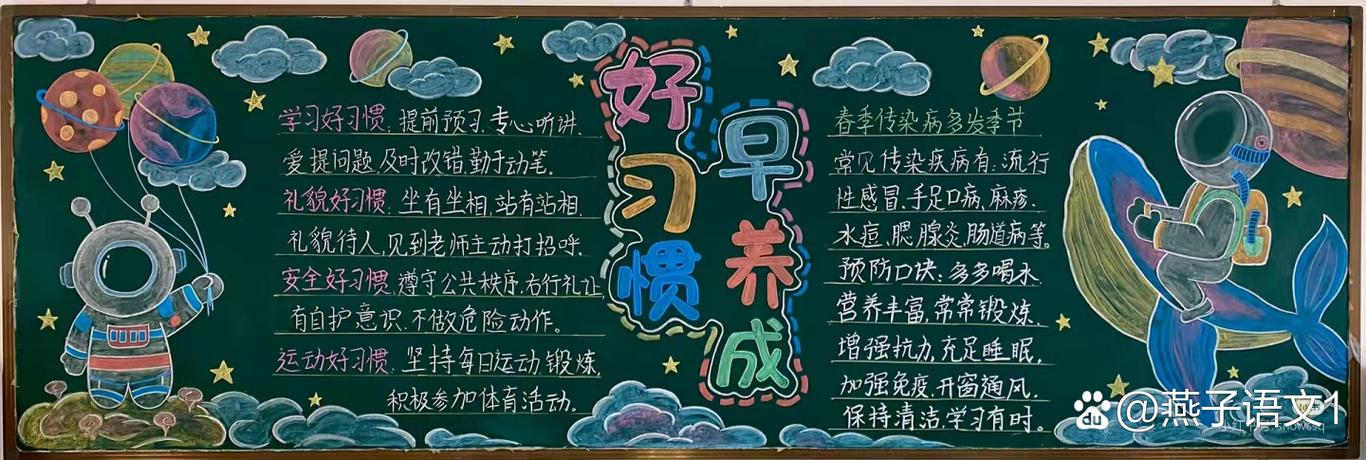 学习好习惯:提前预习.专心听讲.
爱提问题.及时改错.勤于动笔.
礼貌好习惯:坐有坐相.站有站相.
礼貌待人,见到老师主动打招呼.
安全好习惯:遵守公共秩序,右行礼让
有自护意识.不做危险动作。
运动好习惯:坚持每日运动锻炼,
积极参加体育活动。
好习惯
早养成
春季传染病多发季节
常见传染疾病有:流行
性感冒.手足口病.麻疹.
水痘.腮腺炎.肠道病等。
预防口诀:多多喝水
营养丰富,常常锻炼,
增强抗力,充足睡眠,
加强免疫.开窗通风.
保持清洁.学习有时。
@燕子语文1